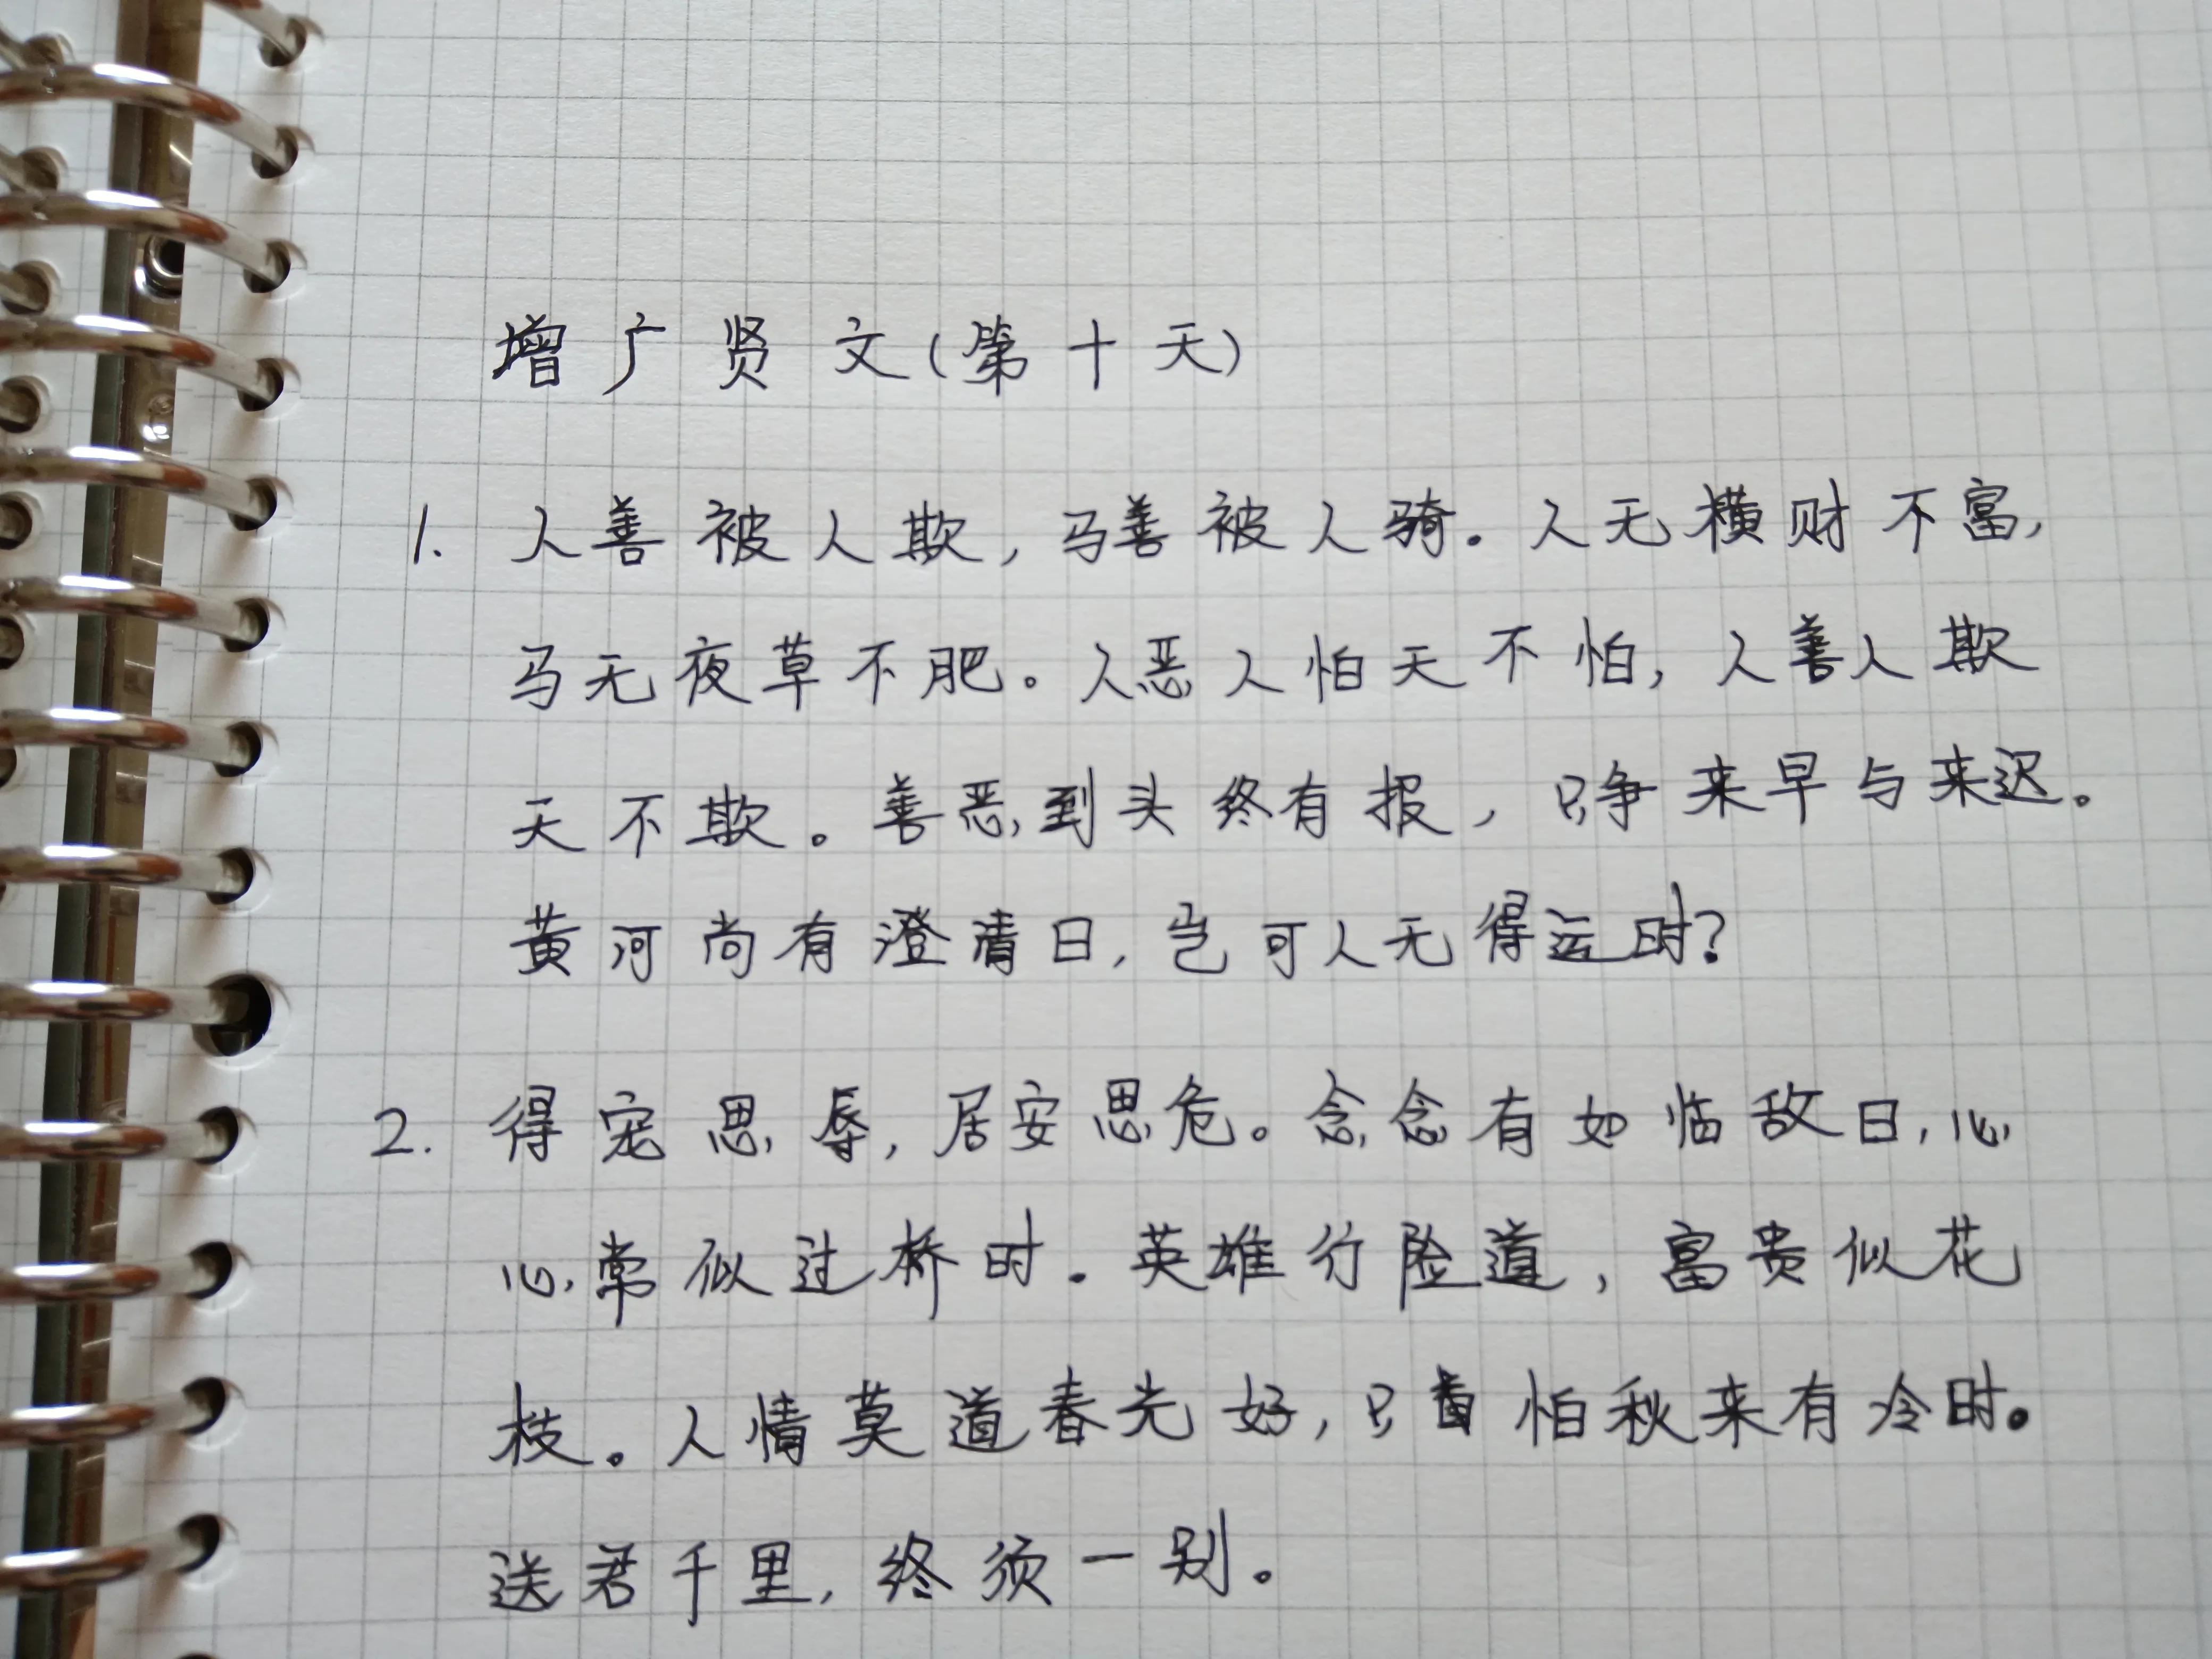 增广贤文(第十天)
1. 人善被人欺，马善被人骑。人无横财不富，
马无夜草不肥。人恶人怕天不怕，人善人欺
天不欺。善恶到头终有报，只争来早与来迟。
黄河尚有澄清日，岂可人无得运时？
2. 得宠思辱，居安思危。念念有如临敌日，心
心常似过桥时。英雄行险道，富贵似花
枝。人情莫道春光好，只怕秋来有冷时。
送君千里，终须一别。